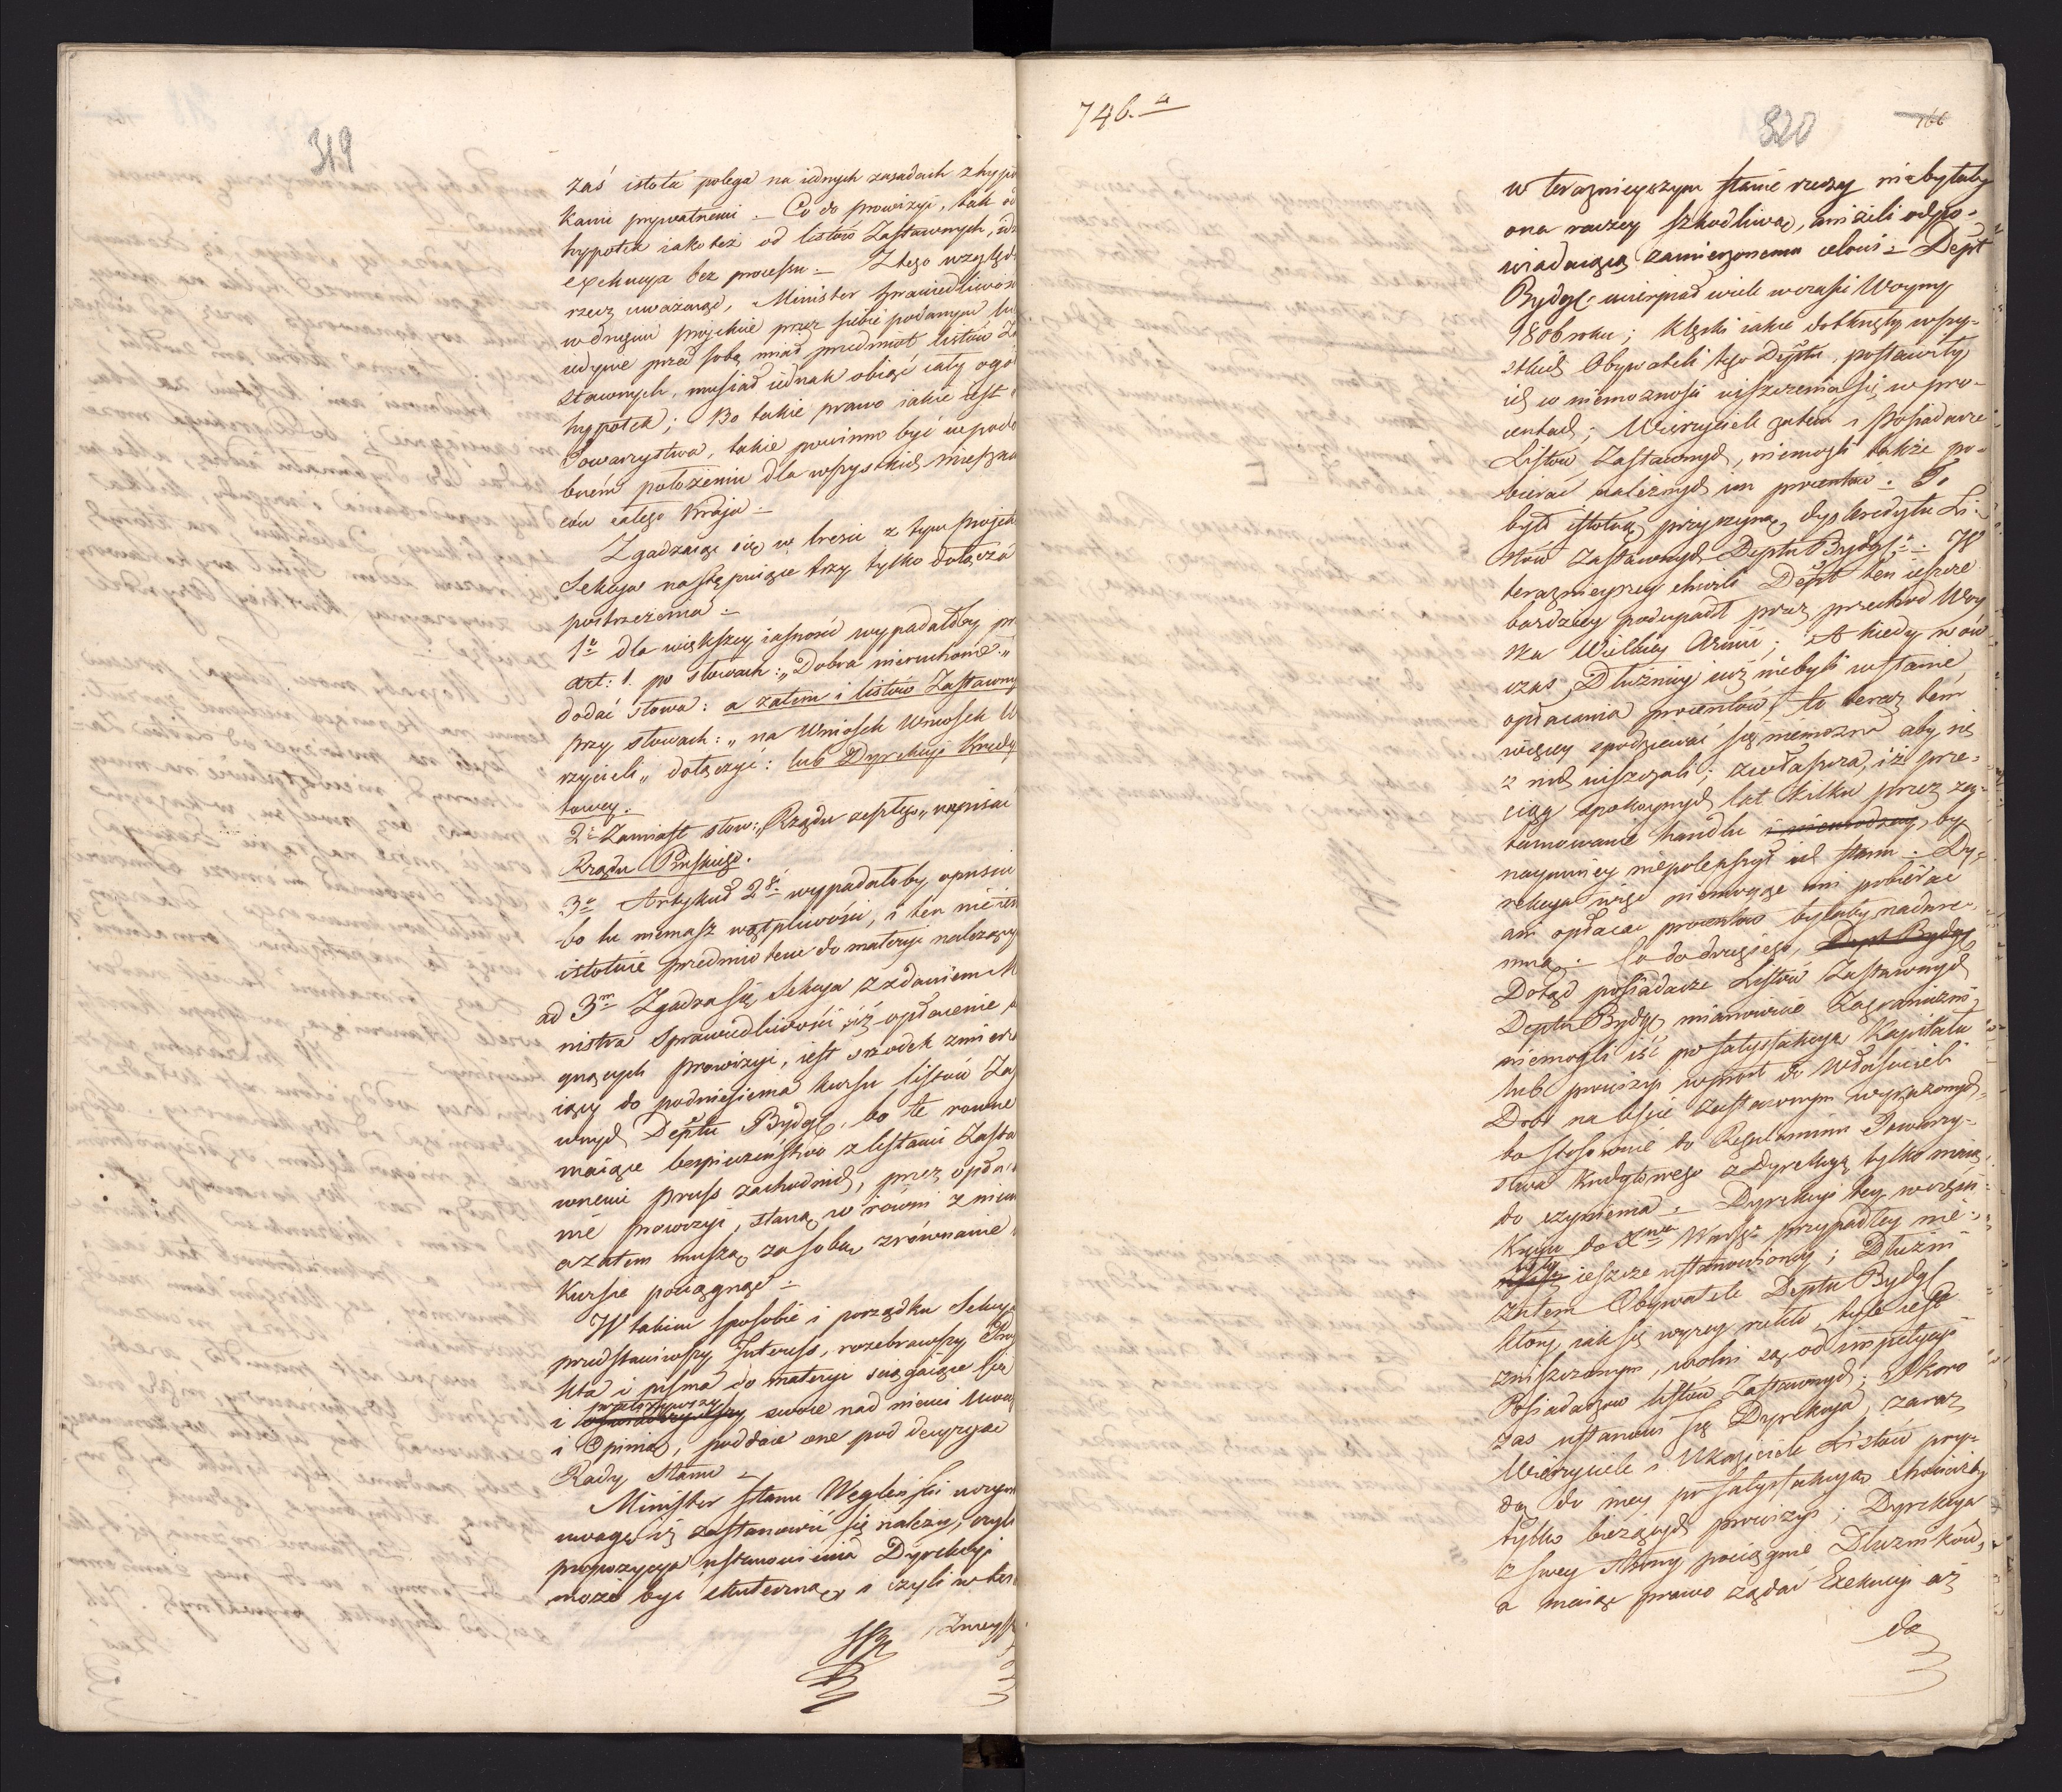 319
zaś istota polega na iednych zasadach z hypo
kami prywatnemi. – Co do prowizyi, tak od
hypotek iako też od listów Zastawnych, idz
exekucya bez processu – Z tego względu
rzecz uważaiąc, Minister Sprawiedliwości
w drugim projekcie przez siebie podanym lu
iedynie przed sobą miał przedmiot listów Za
stawnych, musiał iednak obiąć cały ogół
hypotek; Bo takie prawo iakie iest
Towarzystwa, takie powinno być w podo
bném położeniu dla wszystkich mieszkań
ców całego Kraju –
Zgadzaiąc się w treści z tym Projek
Sekcya następuiące trzy tylko dołącza
postrzeżenia –
1o dla większey iasności wypadałoby pr
Art: 1. po słowach: „Dobra nieruchome."
dodać słowa: a zatem i listów Zastawny
przy słowach: „na Wniosek Wniosek W
rzycieli" dołączyć: lub Dyrekcyi Kredy
towey.
2o Zamiast słow: „Rządu zeszłego" napisać
Rządu Pruskiego.
3o Artykuł 28. wypadałoby opuścić
bo tu niemasz wątpliwości, i ten nie ies
istotnie przedmiotem do materyi należący
ad 3m Zgadza się Sekcya z zdaniem Mi
nistra Sprawiedliwości iż opłacenie
gnących prowizyi, iest srzodek zmierza
iący do podniesienia kursu listów Za
wnych Deptu Bydg, bo te rowne
maiące bespieczeństwo z listami Zasta
wnemi pruss zachodnich, przez opłace
nie prowizyi, staną w równi z niemi
a zatem muszą za sobą zrównanie
Kursu pociągnąć –
W takim sposobie i porządku Sekcya
przedstawiwszy Interess, rozebrawszy Proj
kta i pisma do materyi ściągaiące się
przełożywszy
i swoie nad niemi Uwagi
i Opinią, poddaie one pod decyzyą
Rady Stanu –
Minister Stanu Węgleński uczynił
uwagę iż zastanowić się należy, czyli
propozycya ustanowienia Dyrekcyi
może być skuteczną, i czyli w ter
746.a
320
166
w teraznieyszym stanie rzeczy niebyłaby
ona raczey szkodliwą, aniżeli odpo-
wiadaiącą zamierzonemu celowi – Dept
Bydg: ucierpiał wiele w czasie Woyny
1806 roku; klęski iakie dotknęły wszy-
stkich Obywateli tego Deptu, postawiły
ich w niemożności uiszczenia się w pro-
centach; Wierzyciele zatem i Posiadacze
Listów Zastawnych, niemogli także po-
bierać należnych im procentów. To
było istotną przyczyną dyskredytu Li-
stów Zastawnych Deptu Bydg: – W
teraznieyszey chwili Dept ten ieszcze
bardziey podupadł przez przechod Woy
ska Wielkiey Armii; A kiedy w ów
czas Dłużnicy iuż niebyli w stanie
opłacania procentów, to teraz tém
więcey spodziewać się niemożna aby się
z nich uiszczali; zwłaszcza, iż prze-
ciąg spokoynych lat kilku przez za-
tamowanie handlu i nieurodzay, by
naymniey niepolepszył ich stanu – Dy-
rekcya więc niemogąc ani pobierać
ani opłacać procentów byłaby nadare-
mną – Co do drugiego, Dept Bydg
Dotąd posiadacze Listów Zastawnych
Deptu Bydg mianowicie Zagraniczni,
niemogli iść po satysfakcyą Kapitału
lub prowizyi wprost do Właścicieli
Dóbr na liście zastawnym wyrażonych,
bo stosownie do Regulaminu Towarzy-
stwa Kredytowego z Dyrekcyą tylko maią
do czynienia – Dyrekcyi tey w części
Kraiu do Xtwa Warsz: przypadłey nie-
było ieszcze ustanowioney; Dłużni
zatem Obywatele Deptu Bydg
który, iak się wyzey rzekło, tyle iest
zniszczonym, wolni są od impetycyi
Posiadaczów listów Zastawnych; Skoro
zaś ustanowi się Dyrekcya, zaraz
Wierzyciele i Okaziciele Listów pry-
dą do niey po satysfakcyą chociażby
tylko bieżących prowizyi; Dyrekcya
z swey strony pociągnie Dłużników,
a maiąc prawo żądać Exekucyi aż
do